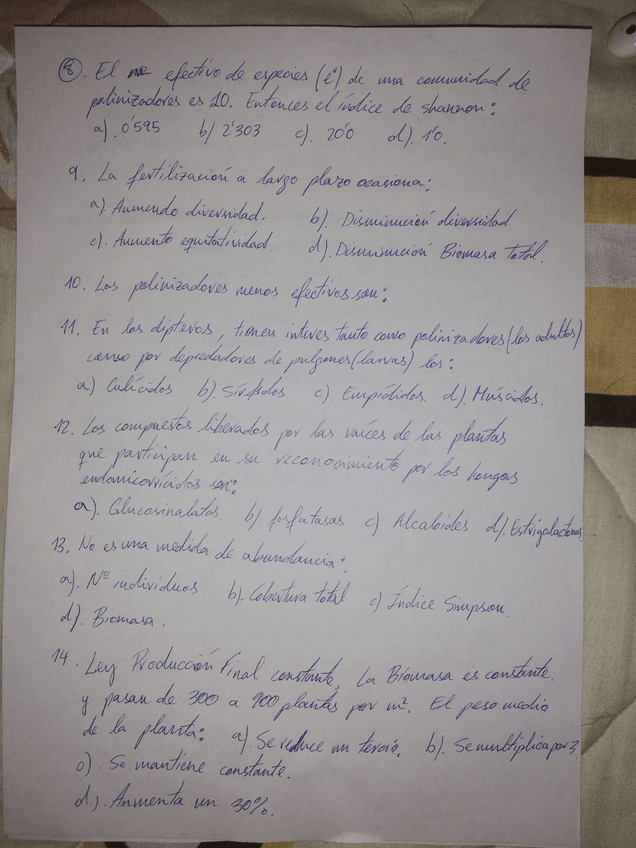 8. El nº efectivo de especies (eᴴ) de una comunidad de
polinizadores es 10. Entonces el índice de shannon:
a). 0'595 b) 2'303 c). 20'0 d). 1'0.
9. La fertilización a largo plazo ocasiona:
a). Aumendo diversidad. b). Disminución diversidad
c). Aumento equitatividad. d). Disminución Biomasa Total.
10. Los polinizadores menos efectivos son:
11. En los dípteros, tienen interes tanto como polinizadores (los adultos)
como por depredadores de pulgones (larvas) los:
a) Culícidos b). Sírfidos c). Empídidos. d). Múscidos.
12. Los compuestos liberados por las raíces de las plantas
que participan en su reconocimiento por los hongos
endomicorrícidos son:
a). Glucosinalatos b) fosfatasas c) Alcaloides d). Estrigalactonas
13. No es una medida de abundancia:
a). Nº individuos b). Cobertura total c) Índice Simpson.
d). Biomasa.
14. Ley Producción Final constante. La Biomasa es constante.
y pasan de 300 a 900 plantas por m². El peso medio
de la planta: a). Se reduce un tercio. b). Se multiplica por 3.
c). Se mantiene constante.
d). Aumenta un 30%.